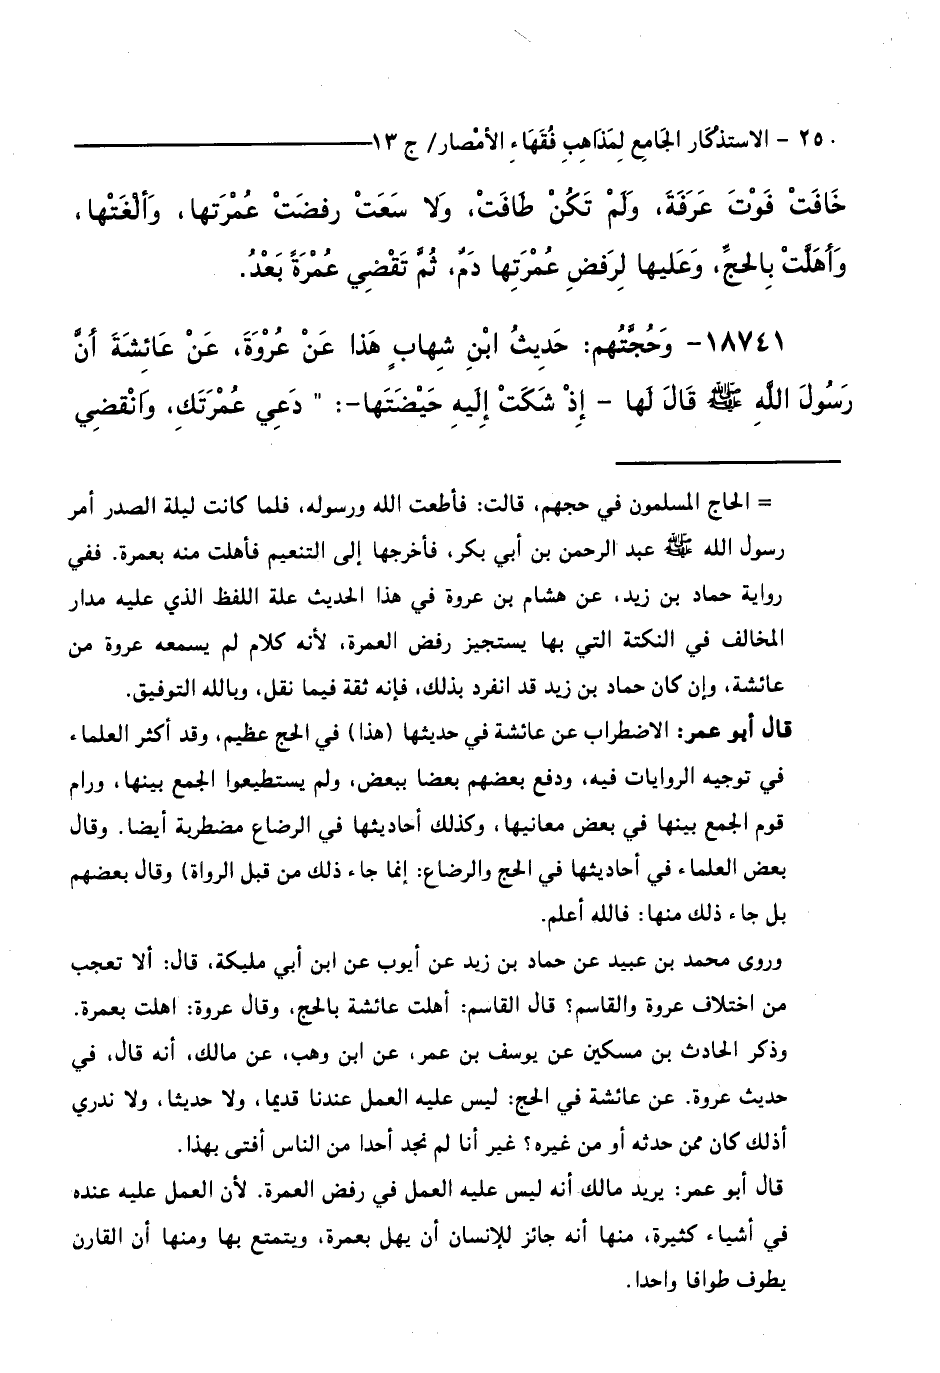 ٢٥٠ - الاستذكار الجَامِع لِمَذاهِبِ فُقَهَاءِ الأمْصار/ ج ١٣
خَافَتْ فَوْتَ عَرَفَةَ، وَلَمْ تَكُنْ طَافَتْ، وَلا سَعَتْ رفضَتْ عُمْرَتها، وَألْغَتْها،
وَأَهَلَّتْ بِالحجِّ، وَعَليها لِرَفضِ عُمْرَتِها دَمٌ، ثُمَّ تَقْضِي عُمْرَةً بَعْدُ.
١٨٧٤١- وَحُجَّتُهم: حَدِيثُ ابْنِ شِهابٍ هَذا عَنْ عُرْوَةَ، عَنْ عَائِشَةَ أنَّ
رَسُولَ اللَّهِ ﷺ قَالَ لَها - إِذْ شَكَتْ إِلَيهِ حَيْضَتَها-: " دَعِي عُمْرَتَكِ، وَانْقضِي
= الحاج المسلمون في حجهم، قالت: فأطعت الله ورسوله، فلما كانت ليلة الصدر أمر
رسول الله ﷺ عبد الرحمن بن أبي بكر، فأخرجها إلى التنعيم فأهلت منه بعمرة. ففي
رواية حماد بن زيد، عن هشام بن عروة في هذا الحديث علة اللفظ الذي عليه مدار
المخالف في النكتة التي بها يستجيز رفض العمرة، لأنه كلام لم يسمعه عروة من
عائشة، وإن كان حماد بن زيد قد انفرد بذلك، فإنه ثقة فيما نقل، وبالله التوفيق.
قال أبو عمر: الاضطراب عن عائشة في حديثها (هذا) في الحج عظيم، وقد أكثر العلماء
في توجيه الروايات فيه، ودفع بعضهم بعضا ببعض، ولم يستطيعوا الجمع بينها، ورام
قوم الجمع بينها في بعض معانيها، وكذلك أحاديثها في الرضاع مضطربة أيضا. وقال
بعض العلماء في أحاديثها في الحج والرضاع: إنما جاء ذلك من قبل الرواة) وقال بعضهم
بل جاء ذلك منها: فالله أعلم.
وروى محمد بن عبيد عن حماد بن زيد عن أيوب عن ابن أبي مليكة، قال: ألا تعجب
من اختلاف عروة والقاسم؟ قال القاسم: أهلت عائشة بالحج، وقال عروة: اهلت بعمرة.
وذكر الحادث بن مسكين عن يوسف بن عمر، عن ابن وهب، عن مالك، أنه قال، في
حديث عروة. عن عائشة في الحج: ليس عليه العمل عندنا قديما، ولا حديثا، ولا ندري
أذلك كان ممن حدثه أو من غيره؟ غير أنا لم نجد أحدا من الناس أفتى بهذا.
قال أبو عمر: يريد مالك أنه ليس عليه العمل في رفض العمرة. لأن العمل عليه عنده
في أشياء كثيرة، منها أنه جائز للإنسان أن يهل بعمرة، ويتمتع بها ومنها أن القارن
يطوف طوافا واحدا.